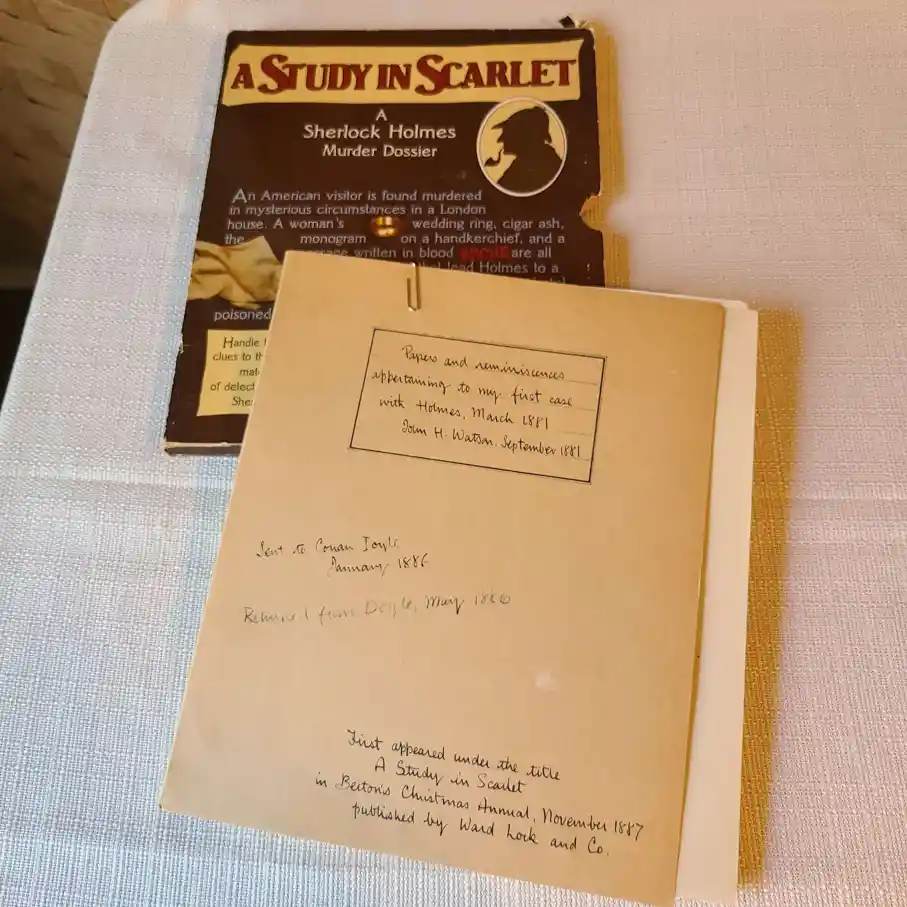 A STUDY IN SCARLET
A
Sherlock Holmes
Murder Dossier
An American visitor is found murdered
in mysterious circumstances in a London
house. A woman's wedding ring, cigar ash,
the monogram on a handkerchief, and a
written in blood are all
lead Holmes to a
poisoned
Handle
clues to
of
Papers and reminiscences
appertaining to my first case
with Holmes, March 1881
John H. Watson. September 1881
Sent to Conan Doyle
January 1886
Returned from Doyle, May 1886
First appeared under the title
A Study in Scarlet
in Beeton's Christmas Annual, November 1887
published by Ward Lock and Co.